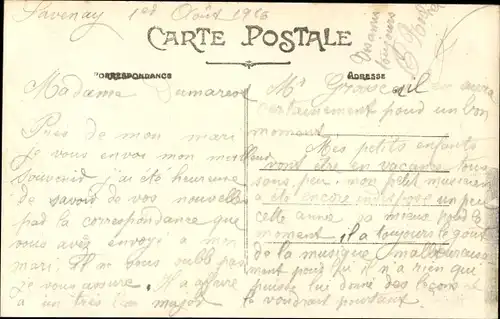 Savenay 1er Août 1916
CARTE POSTALE
CORRESPONDANCE
ADRESSE
Madame Demarest
Près de mon mari
je vous envoi mon meilleur
souvenir j'ai été heureuse
de savoir de vos nouvelles
par la correspondance que
vous avez envoyé a mon
mari. Il ne vous oubli pas
je vous assure. Il a affaire
a un très bon major
Mr en aura
certainement pour un bon
moment
Mes petits enfants
vont être en vacance tous
sous peu. noe petit musicien
a été encore indispose un peu
celle anne sa mieux pour le
moment, il a toujours le gout
de la musique malheureuse
ment pour lui il n'a rien qui
puisse lui donné des leçons et
le voudrait pourtant.
toujours